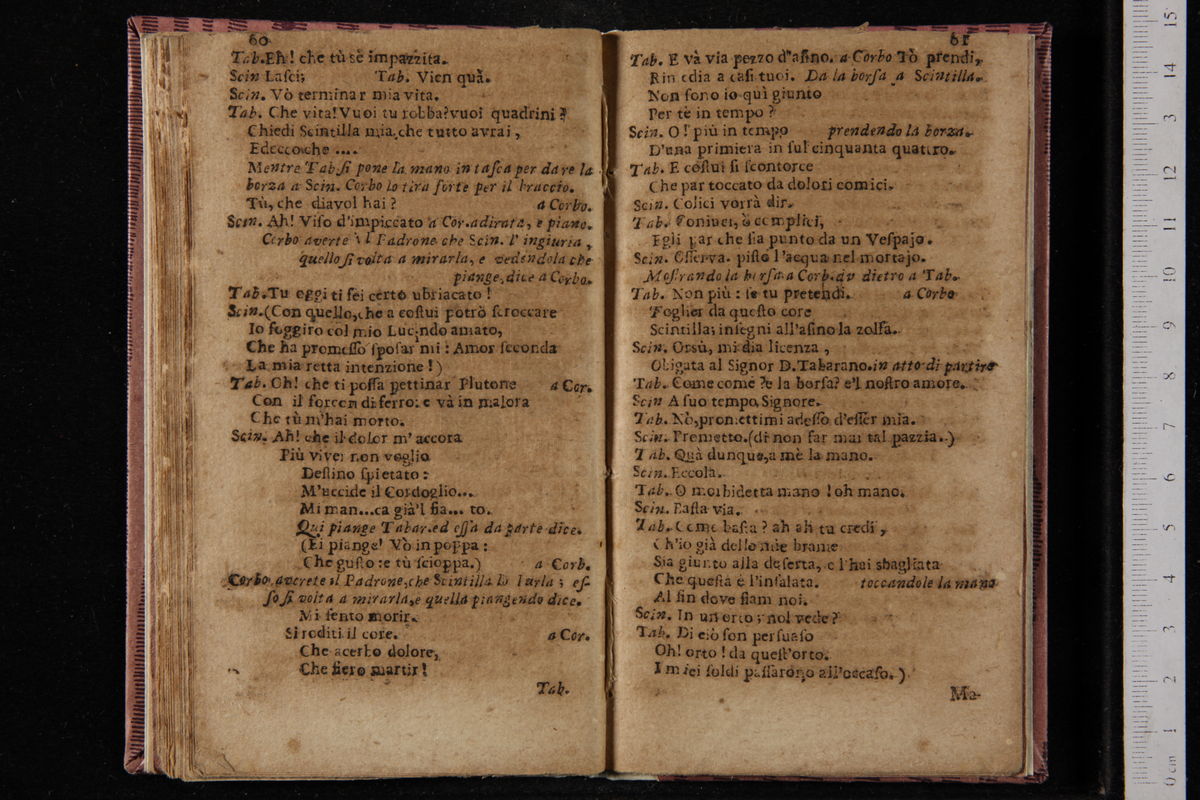 60
Tab. Eh! che tù sè impazzita.
Scin Laſci; Tab. Vien quà.
Scin. Vò terminar mia vita.
Tab. Che vita! Vuoi tu robba? vuoi quadrini?
Chiedi Scintilla mia, che tutto avrai,
Ed eccoche ....
Mentre Tab. ſi pone la mano in taſca per dare la
borza a Scin. Corbo lo tira forte per il braccio.
Tù, che diavol hai? a Corbo.
Scin. Ah! Viſo d'impiccato a Cor. adirata, e piano.
Corbo averte il Padrone che Scin. l'ingiuria,
quello ſi volta a mirarla, e vedendola che
piange, dice a Corbo.
Tab. Tu oggi ti ſei certo ubriacato!
Scin. (Con quello, che a coſtui potrò ſcroccare
Io fuggirò col mio Lucindo amato,
Che ha promeſſo ſpoſar mi: Amor ſeconda
La mia retta intenzione!)
Tab. Oh! che ti poſſa pettinar Plutone a Cor.
Con il forcon di ferro: e và in malora
Che tù m'hai morto.
Scin. Ah! che il dolor m' accora
Più viver non voglio
Deſtino ſpietato:
M'uccide il Cordoglio...
Mi man...ca già'l fia... to.
Qui piange Tabar. ed eſſa da parte dice.
(Ei piange! Vò in poppa:
Che guſto: e tù ſcioppa.) a Corb.
Corbo averete il Padrone, che Scintilla lo burla; eſ-
ſo ſi volta a mirarla, e quella piangendo dice.
Mi ſento morir.
Si roditi il core. a Cor.
Che acerbo dolore,
Che fiero martir!
Tab.
61
Tab. E và via pezzo d'aſino. a Corbo Tò prendi,
Rimedia a caſi tuoi. Da la borſa a Scintilla.
Non ſono io quì giunto
Per tè in tempo?
Scin. O! più in tempo prendendo la borza.
D'una primiera in ſul cinquanta quattro.
Tab. E coſtui ſi ſcontorce
Che par toccato da dolori comici.
Scin. Colici vorrà dir.
Tab. Coniuei, ò complici,
Egli par che ſia punto da un Veſpajo.
Scin. Oſſerva. piſto l'acqua nel mortajo.
Moſtrando la borſa a Corb. dietro a Tab.
Tab. Non più: ſe tu pretendi. a Corbo
Toglier da queſto core
Scintilla; inſegni all'aſino la zolfa.
Scin. Orsù, mi dia licenza,
Obligata al Signor D. Tabarano. in atto di partire
Tab. Come come? e la borſa? e'l noſtro amore.
Scin A ſuo tempo, Signore.
Tab. Nò, promettimi adeſſo d'eſſer mia.
Scin. Premetto. (di non far mai tal pazzia.)
Tab. Quà dunque, a mè la mano.
Scin. Eccola.
Tab. O morbidetta mano! oh mano.
Scin. Baſta via.
Tab. Come baſta? ah ah tu credi,
Ch'io già delle mie brame
Sia giunto alla deſerta, e l'hai sbagliata
Che queſta è l'inſalata. toccandole la mano
Al fin dove ſiam noi.
Scin. In un orto; nol vede?
Tab. Di ciò ſon perſuaſo
Oh! orto! da queſt'orto.
I miei ſoldi paſſarono all'occaſo.)
Ma-